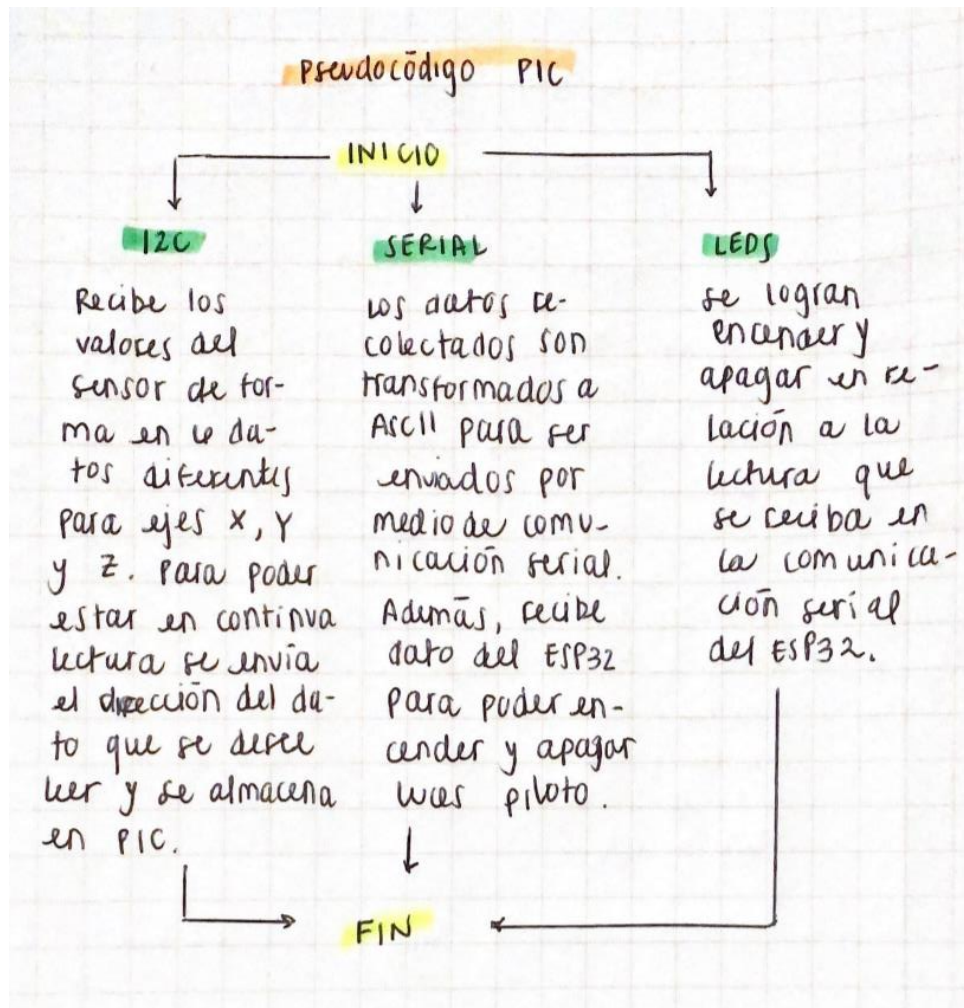 Pseudocódigo PIC
INICIO
I2C
Recibe los
valores del
sensor de for-
ma en 6 da-
tos diferentes
para ejes X, Y
y Z. Para poder
estar en continua
lectura se envia
el dirección del da-
to que se desee
leer y se almacena
en PIC.
SERIAL
Los datos re-
colectados son
transformados a
ASCII para ser
enviados por
medio de comu-
nicación serial.
Además, recibe
dato del ESP32
para poder en-
cender y apagar
luces piloto.
LEDS
se logran
encender y
apagar en re-
lación a la
lectura que
se reciba en
la comunica-
ción serial
del ESP32.
FIN